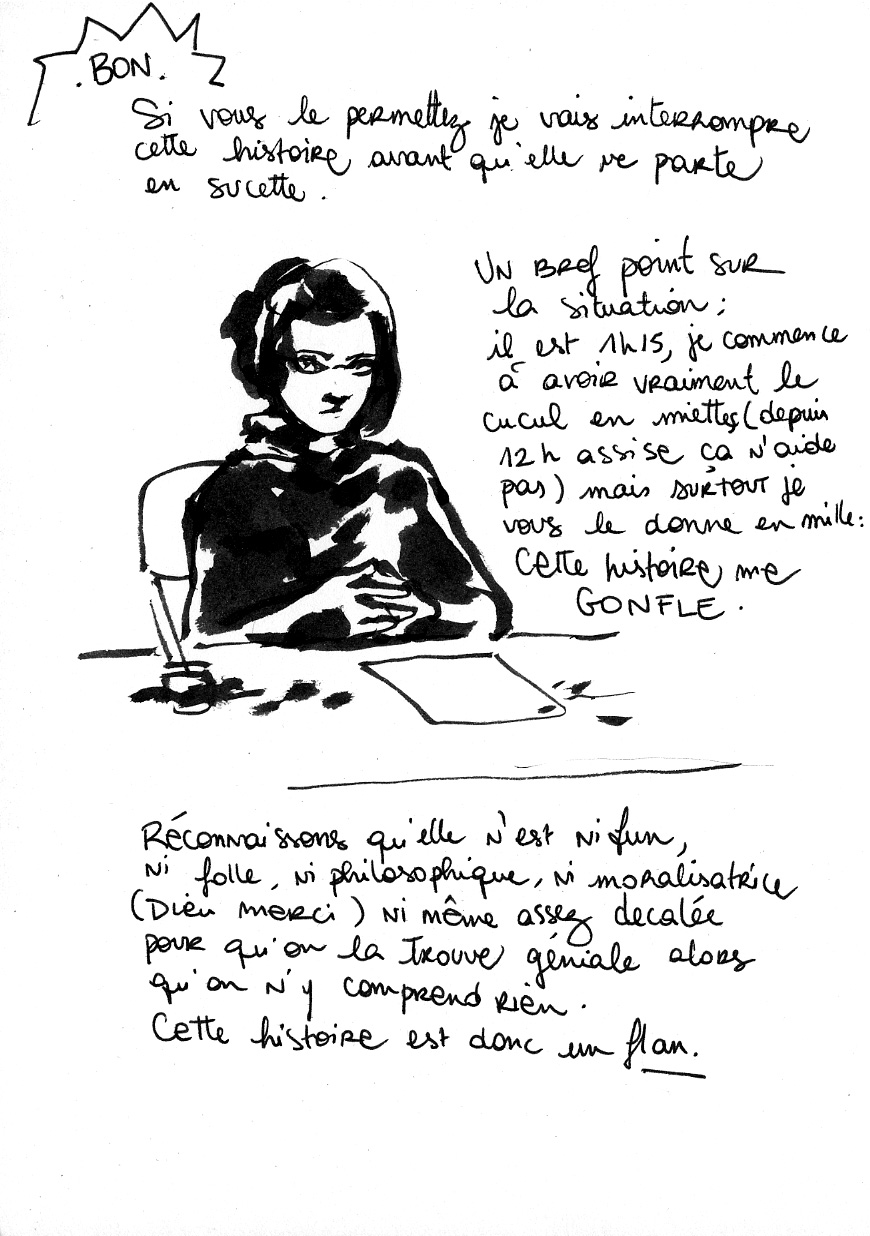 .BON.
Si vous le permettez je vais interrompre
cette histoire avant qu'elle ne parte
en sucette.
UN BREf point SUR
la situation ;
il est 1h15, je commence
à avoir vraiment le
cucul en miettes (depuis
12h assise ça n'aide
pas) mais SURTOUT je
vous le donne en mille :
Cette histoire me
GONFLE.
Réconnaissons qu'elle n'est ni fun,
ni folle, ni philosophique, ni moralisatrice
(Dieu merci) ni même assez decalée
pour qu'on la trouve géniale alors
qu'on n'y comprend rien.
Cette histoire est donc un flan.